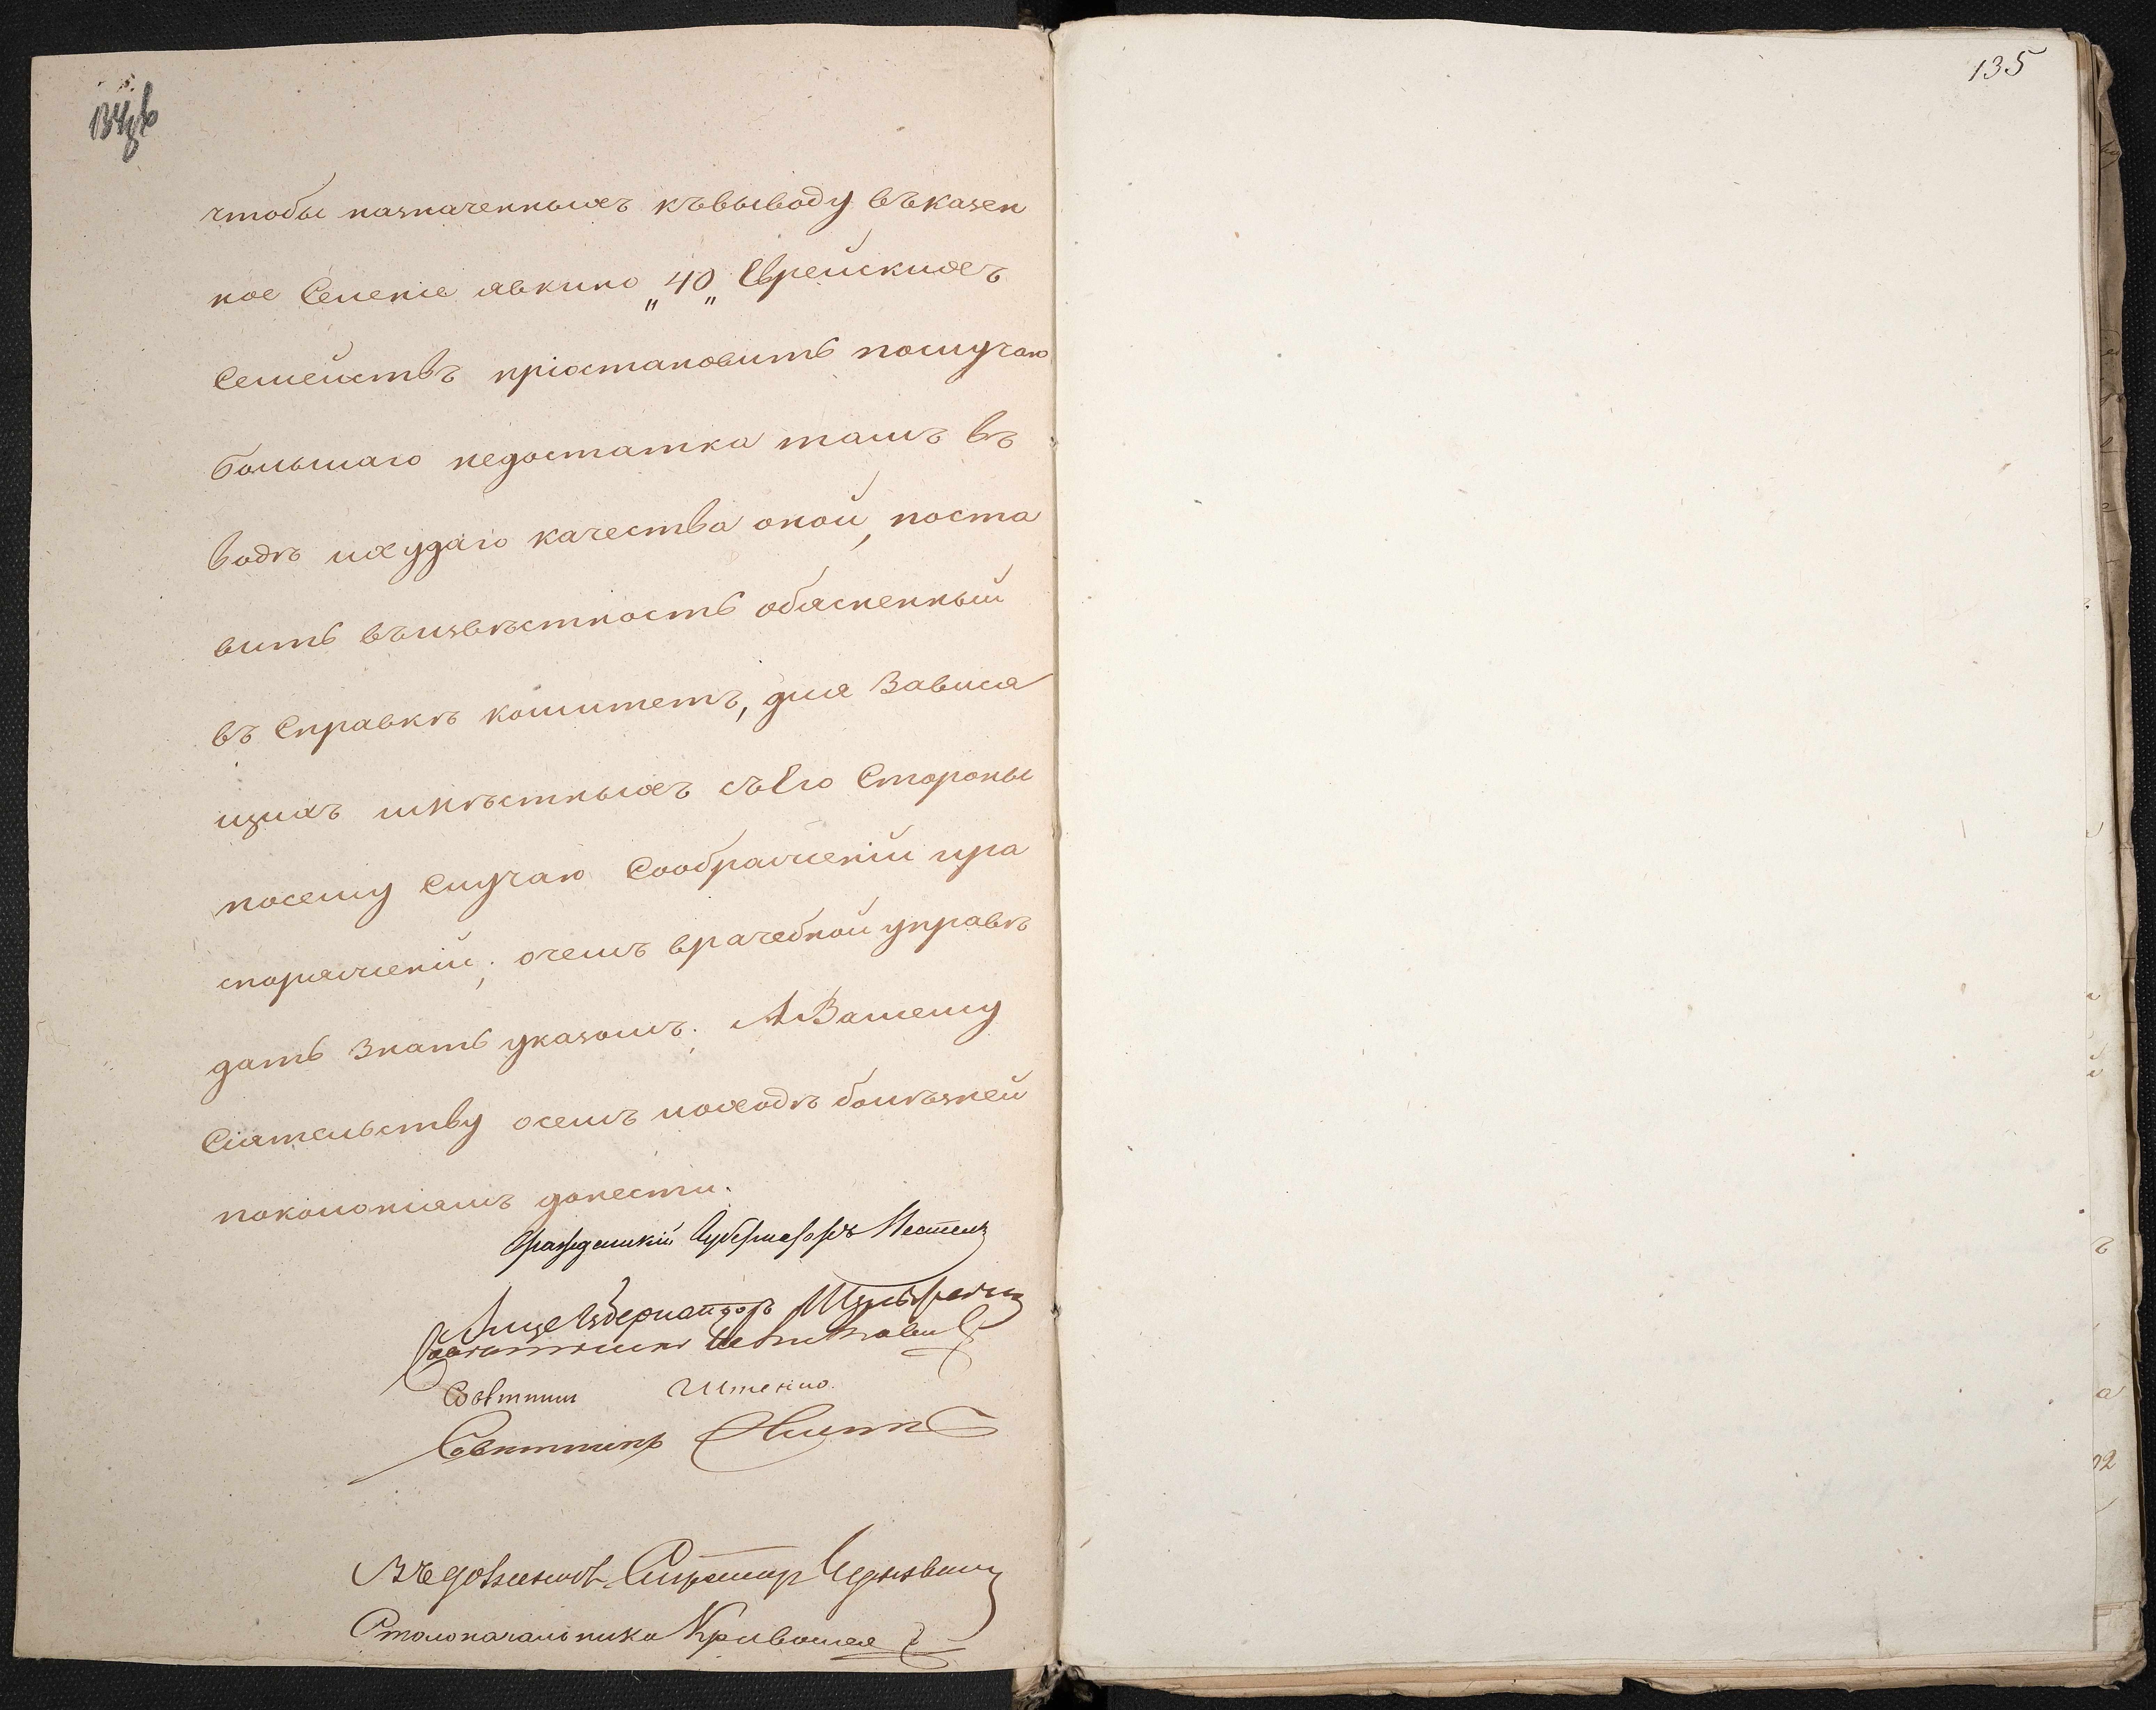 134об
135
чтобы назначенныхъ къвыводу въказен
ное Селеніе явкино „40„ Еврейскихъ
Семействъ пріостановить послучаю
большаго недостатка тамъ въ
водѣ ихудаго качества оной, поста
вить въизвѣстность обясненный
въ Справкѣ комитетъ, для Завися
щихъ имѣстныхъ съЕго Стороны
посему Случаю Соображеніи ира
споряженіи; очемъ врачебной управѣ
дать Знать указомъ. АВашему
Сіятельству осемъ иоходѣ болѣзней
поколоніямъ донести.
Гражданскій Губернаторъ
Вице Губернаторъ
Совѣтникъ
Совѣтникъ
Совѣтникъ
Столоначальника